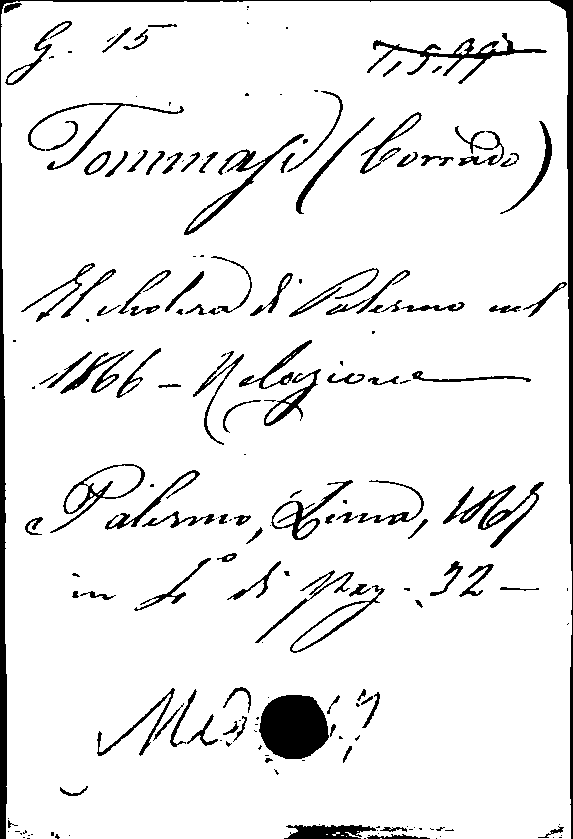 G. 15
Tommasi (Corrado)
Il cholera di Palermo nel
1866 - Relazione
Palermo, Lima, 1867
in 4° di pag. 32 -